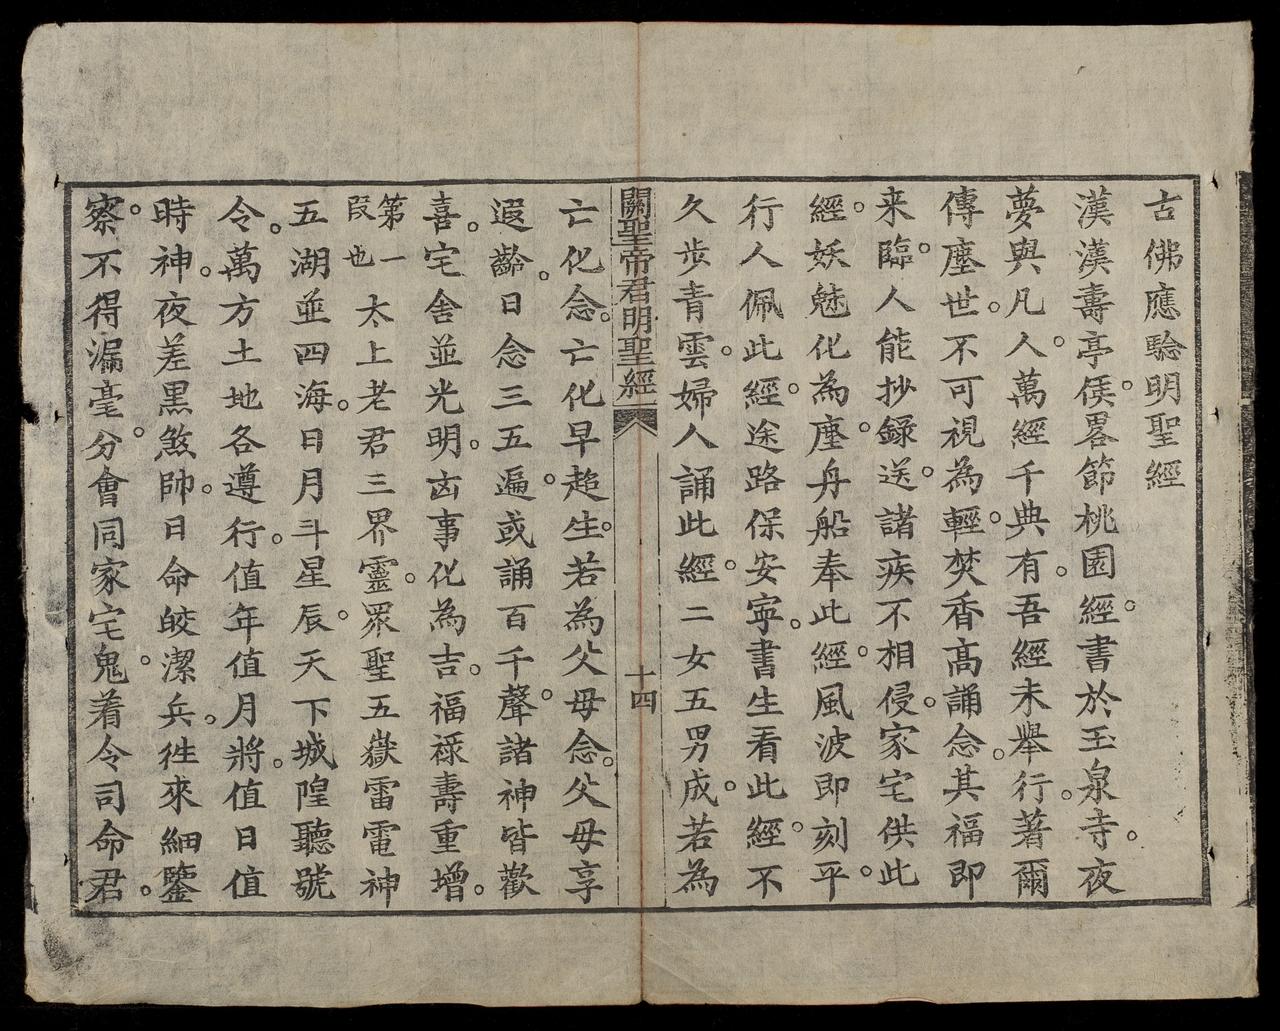 古佛應驗明聖經
漢漢壽亭侯。畧節桃園經。書於玉泉寺。夜
夢與凡人。萬經千典有。吾經未舉行。著爾
傳塵世。不可視為輕。焚香高誦念。其福即
来臨。人能抄錄送。諸疾不相侵。家宅供此
經。妖魅化為塵。舟船奉此經。風波即刻平。
行人佩此經。途路保安寧。書生看此經。不
久步青雲。婦人誦此經。二女五男成。若為
關聖帝君明聖經
十四
亡化念。亡化早超生。若為父母念。父母享
遐齡。日念三五遍。或誦百千聲。諸神皆歡
喜。宅舍並光明。凶事化為吉。福祿壽重增。
第一
叚也
太上老君三界靈。眾聖五嶽雷電神
五湖並四海。日月斗星辰。天下城隍聽號
令。萬方土地各遵行。值年值月將。值日值
時神。夜差黑煞帥。日命皎潔兵。徃來細鑒
察。不得漏毫分。會同家宅鬼。着令司命君。